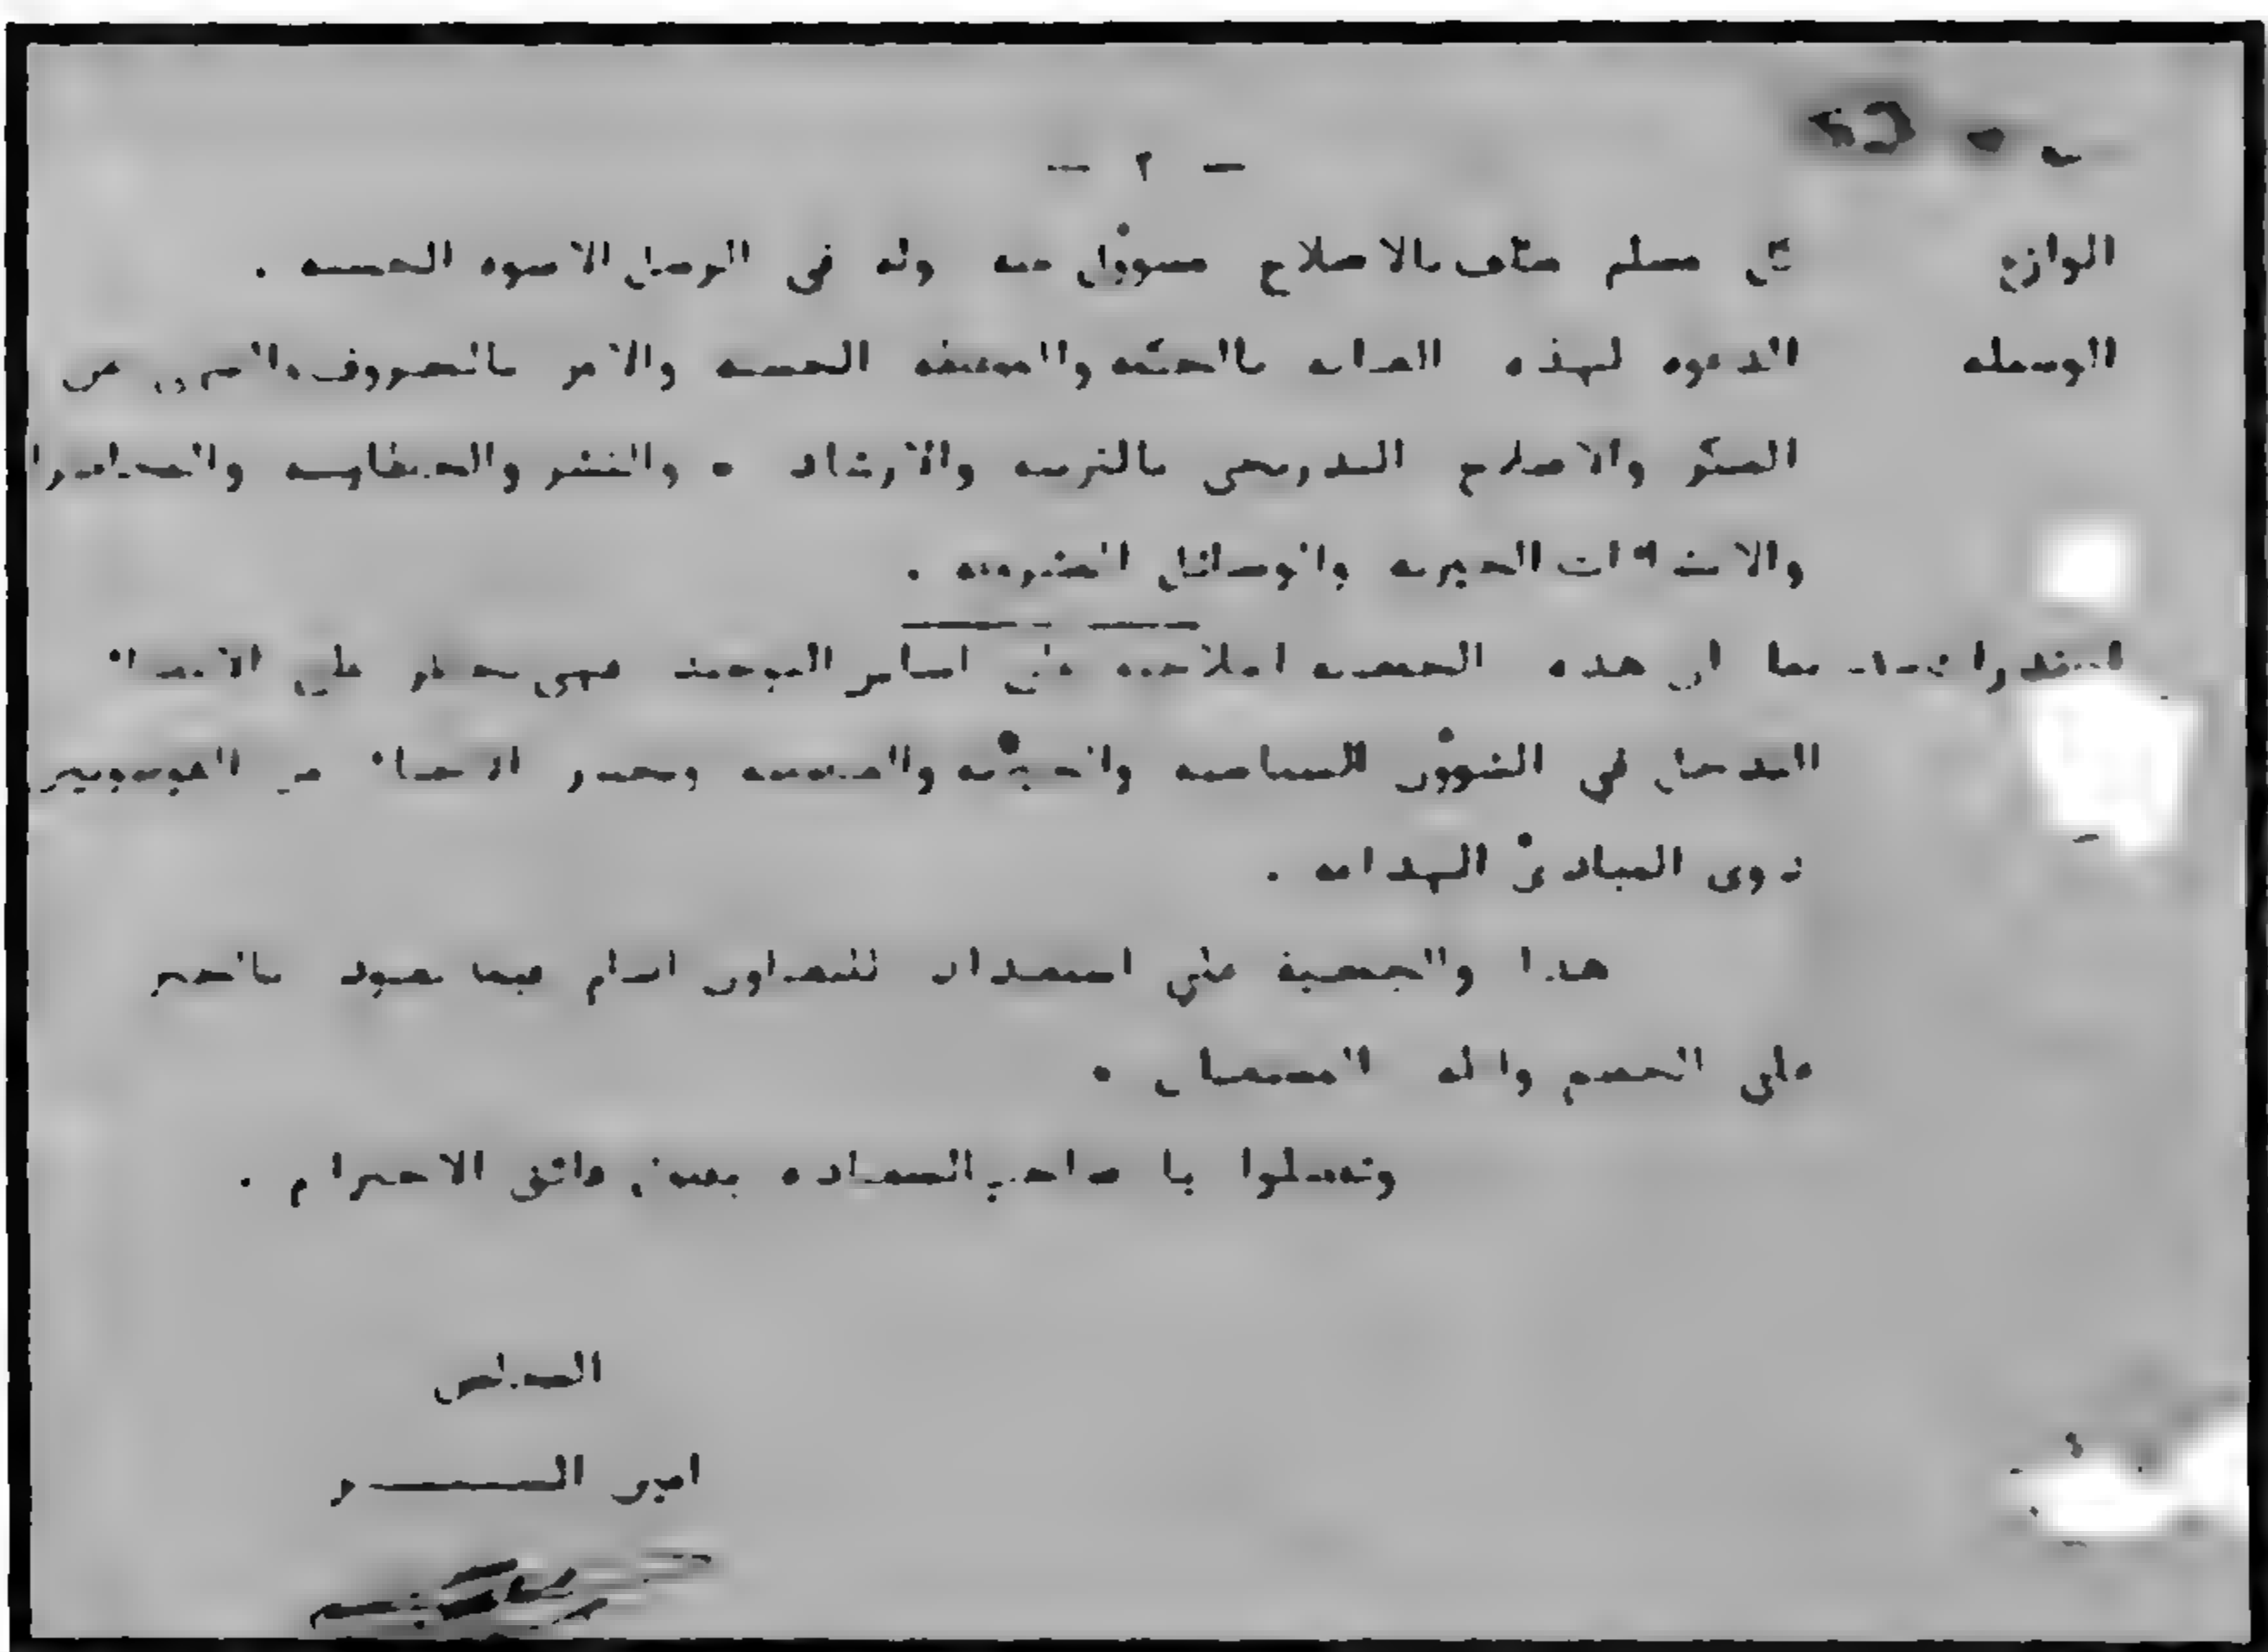 - ٢ -
الوازع كل مسلم مكلف بالاصلاح مسوؤل عنه وله في الرسول الاسوه الحسنه .
الوسيله الدعوه لهذه الغايه بالحكمه والموعظه الحسنه والامر بالمعروف والنهى عن
المنكر والاصلاح التدريجى بالتربيه والارشاد . والنشر والخطابه والمحاضرا
والانشاات الخيريه والوسائل المشروعه .
بما ان هذه الجمعيه اصلاحيه على اساس التوحيد فهى تحظر على الاعضاء
التدخل في الشوؤن السياسيه والحزبيه وتحذر الاعضاء من الفوضويين
ذوى المبادئ الهدامه .
هذا والجمعية على استعداد للتعاون التام فيما يعود بالخير
على الجميع والله المستعان .
وتفضلوا يا صاحب السعاده بقبول فائق الاحترام .
المخلص
امين الســـــر